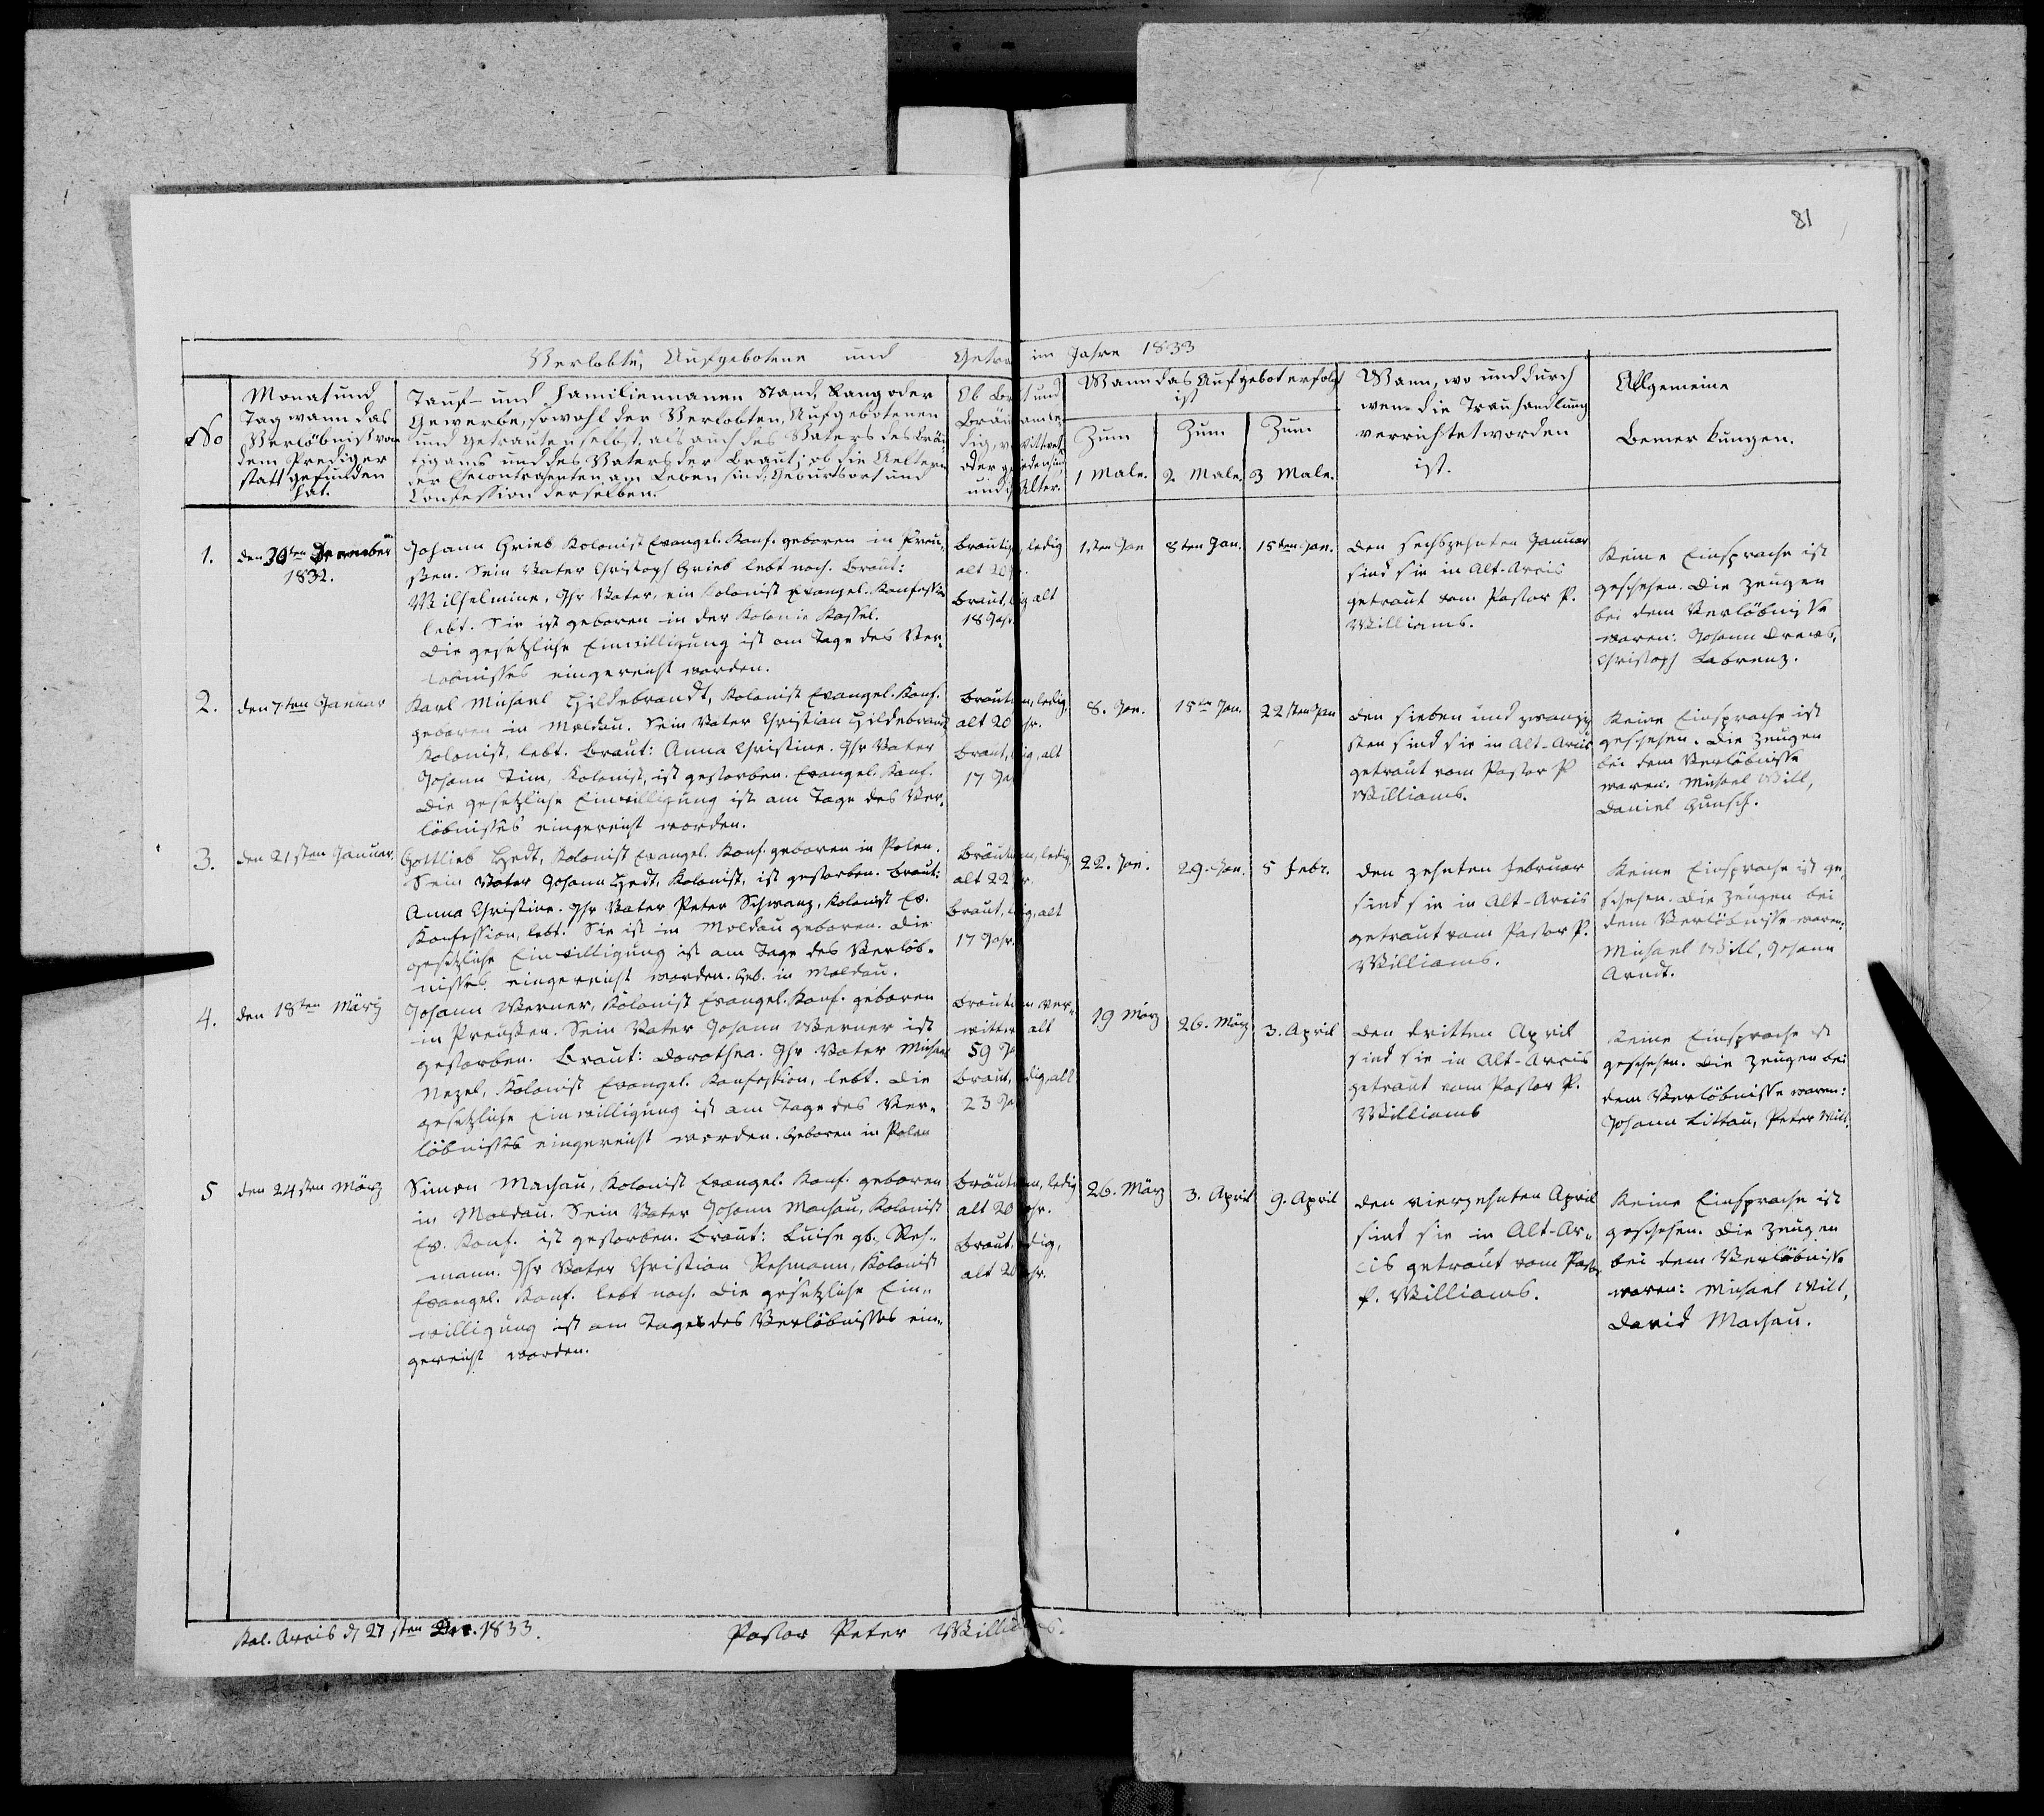 81
Verlobte, Aufgebotene und Getra im Jahre 1833
No
Monat und
Tag wann das
Verlöbniss von
dem Prediger
statt gefunden
hat.
Tauf- und Familiennamen Stand, Rang oder
Gewerbe, sowohl der Verlobten, Aufgebotenen
und Getrauten selbst, als auch des Vaters des Bräu-
tigams und des Vaters der Braut; ob die Aeltern
der Contrahenten am Leben sind; Geburtsort und
Confession derselben.
Ob Br t und
Bräu am le-
dig, v wittwet
oder ge iedensind
und ih Alter.
Wann das Aufgebot erfolgt
ist
Zum
1 Male.
Zum
2 Male.
Zum
3 Male.
Wann, wo und durch
wen die Trauhandlung
verrichtet worden
ist.
Allgemeine
Bemerkungen.
1.
den 30sten December
1832.
Johann Grieb Kolonist Evangel. Konf. geboren in Preu-
ßen. Sein Vater Christoph Grieb lebt noch. Braut:
Wilhelmine, Ihr Vater, ein Kolonist Evangel. Konfession
lebt. Sie ist geboren in der Kolonie Kassel.
Die gesetzliche Einwilligung ist am Tage des Ver-
löbnisses eingereicht worden.
Bräutig ledig
alt
Braut, ig alt
18 Jahr
1sten Jan
8ten Jan.
15ten Jan.
Den sechszehnten Januar
sind sie in Alt-Arcis
getraut vom Pastor P.
Williams.
Keine Einsprache ist
geschehen. Die Zeugen
bei dem Verlöbnisse
waren: Johann Drews,
Christoph Labrenz.
2.
den 7ten Januar
Karl Michael Hildebrandt, Kolonist Evangel. Konf.
geboren in Moldau. Sein Vater Christian Hildebrandt
Kolonist, lebt. Braut: Anna Christine. Ihr Vater
Johann Tim, Kolonist, ist gestorben. Evangel. Konf.
Die gesetzliche Einwilligung ist am Tage des Ver-
löbnisses eingereicht worden.
Bräut m, ledig,
alt 20 hr.
Braut, ig, alt
17 Ja
8. Jan.
15ten Jan.
22sten Jan
Den sieben und zwanzig
sten sind sie in Alt-Arcis
getraut vom Pastor P
Williams.
Keine Einsprache ist
geschehen. Die Zeugen
bei dem Verlöbnisse
waren. Michael Will,
Daniel Gunsch.
3.
den 21sten Januar.
Gottlieb Hedt, Kolonist Evangel. Konf. geboren in Polen.
Sein Vater Johann Hedt, Kolonist, ist gestorben. Braut:
Anna Christine. Ihr Vater Peter Schwanz, Kolonist Ev.
Konfession, lebt. Sie ist in Moldau geboren. Die
gesetzliche Einwilligung ist am Tage des Verlöb-
nisses eingereicht worden. Geb. in Moldau.
Bräut m, ledig,
alt 22 r.
Braut, ig, alt
17 Jahr.
22. Jan.
29. Jan.
5 Febr.
Den zehnten Februar
sind sie in Alt-Arcis
getraut vom Pastor P.
Williams.
Keine Einsprache ist ge-
schehen. Die Zeugen bei
dem Verlöbnisse waren:
Michael Will, Johann
Arndt.
4.
den 18ten März
Johann Werner, Kolonist Evangel. Konf. geboren
in Preußen. Sein Vater Johann Werner ist
gestorben. Braut: Dorothea. Ihr Vater Michael
Nezel, Kolonist Evangel. Konfession, lebt. Die
gesetzliche Einwilligung ist am Tage des Ver-
löbnisses eingereicht worden. Geboren in Polen
Bräut m ver-
wittw alt
59 Ja
Braut, dig, alt
23 Ja
19 März
26. März
3. April
Den dritten April
sind sie in Alt-Arcis
getraut vom Pastor P.
Williams
Keine Einsprache ist
geschehen. Die Zeugen bei
dem Verlöbnisse waren:
Johann Littau, Peter Will.
5
den 24sten März
Simon Machau, Kolonist Evangel. Konf. geboren
in Moldau. Sein Vater Johann Machau, Kolonist
Ev. Konf. ist gestorben. Braut: Luise gb. Reh-
mann. Ihr Vater Christian Rehmann, Kolonist
Evangel. Konf. lebt noch. Die gesetzliche Ein-
willigung ist am Tage des Verlöbnisses ein-
gereicht worden.
Bräut m, ledig
alt 20 ahr.
Braut, dig,
alt 20 ahr.
26. März
3. April
9. April
Den vierzehnten April
sind sie in Alt-Ar-
cis getraut vom Pastor
P. Williams.
Keine Einsprache ist
geschehen. Die Zeugen
bei dem Verlöbnisse
waren: Michael Will,
David Machau.
Kol. Arcis d 27sten Dec. 1833.
Pastor Peter Williams.